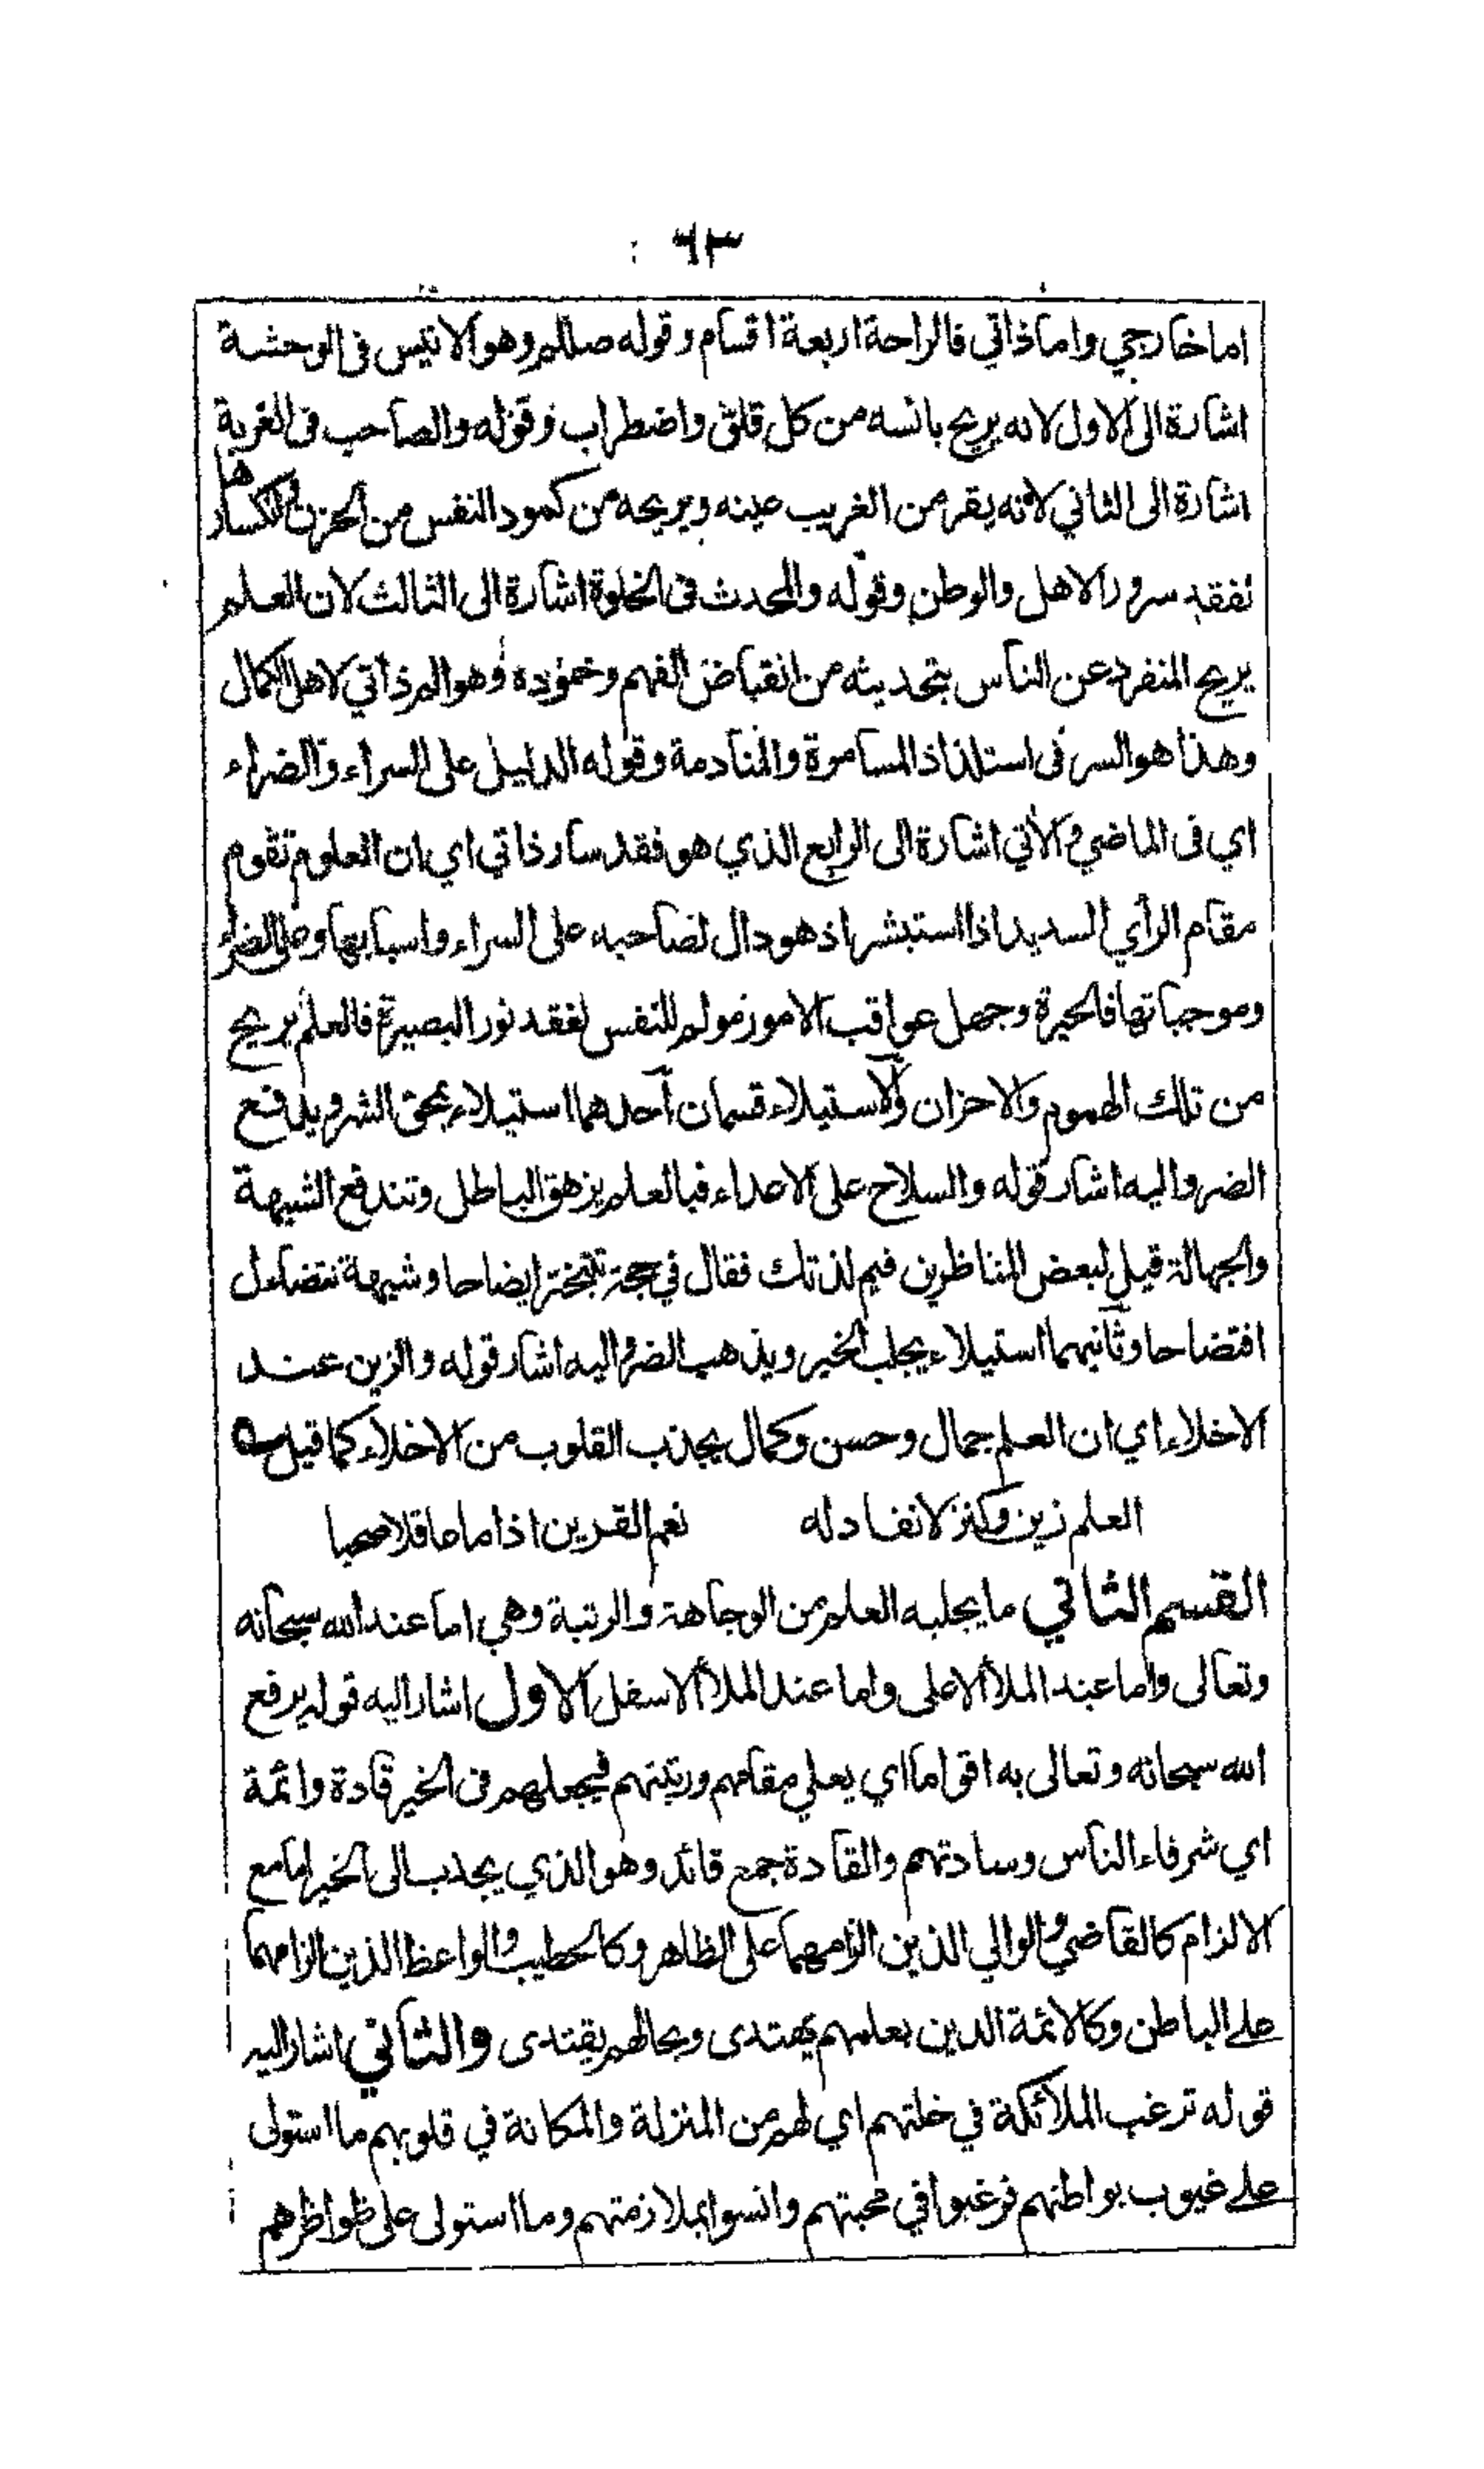 ٦٣
اما خارجي واما ذاتي فالراحة اربعة اقسام وقوله صللم وهو الانيس فى الوحشة
اشارة الى الاول لانه يريح بانسه من كل قلق واضطراب وقوله والصاحب فى الغربة
اشارة الى الثاني لانه يقر من الغريب عينه ويريحه من كمود النفس من الحزن وانكسارها
بفقد سرور الاهل والوطن وقوله والمحدث فى الخلوة اشارة الى الثالث لان العلم
يريح المنفرد عن الناس بتحديثه من انقباض الفهم وخموده وهو الم ذاتي لاهل الكمال
وهذا هو السر فى استلذاذ المسامرة والمنادمة وقوله الدليل على السراء والضراء
اي فى الماضي والآتي اشارة الى الرابع الذي هو فقد سار ذاتي اي ان العلوم تقوم
مقام الرأي السديد اذا استبشر اذ هو دال لصاحبه على السراء واسبابها وعلى الضراء
وموجباتها فالحيرة وجهل عواقب الامور مولم للنفس لفقد نور البصيرة فالعلم يريح
من تلك الهموم والاحزان والاستيلاء قسمان احدهما استيلاء يمحق الشر ويدفع
الضر واليه اشار قوله والسلاح على الاعداء فبالعلم يزهق الباطل وتندفع الشبهة
والجهالة قيل لبعض المناظرين فيم لذتك فقال في حجة تتبختر ايضاحا وشبهة تتضاءل
افتضاحا وثانيهما استيلاء يجلب الخير ويذهب الضر واليه اشار قوله والزين عند
الاخلاء اي ان العلم جمال وحسن وكمال يجذب القلوب من الاخلاء كما قيل
العلم زين وكنز لا نفاد له نعم القرين اذا ما عاقلا صحبا
القسم الثاني ما يجلبه العلم من الوجاهة والرتبة وهي اما عند الله سبحانه
وتعالى واما عند الملأ الاعلى واما عند الملأ الاسفل الاول اشار اليه قوله يرفع
الله سبحانه وتعالى به اقواما اي يعلي مقامهم ورتبتهم فيجعلهم فى الخير قادة وائمة
اي شرفاء الناس وسادتهم والقادة جمع قائد وهو الذي يجذب الى الخير اما مع
الالزام كالقاضي والوالي الذين الزامهما على الظاهر وكالخطيب والواعظ الذين الزامهما
على الباطن وكالائمة الذين بعلمهم يهتدى وبحالهم يقتدى والثاني اشار اليه
قوله ترغب الملائكة في خلتهم اي لهم من المنزلة والمكانة في قلوبهم ما استولى
على غيوب بواطنهم فرغبوا في محبتهم وانسوا بملازمتهم وما استولى على ظواظرهم